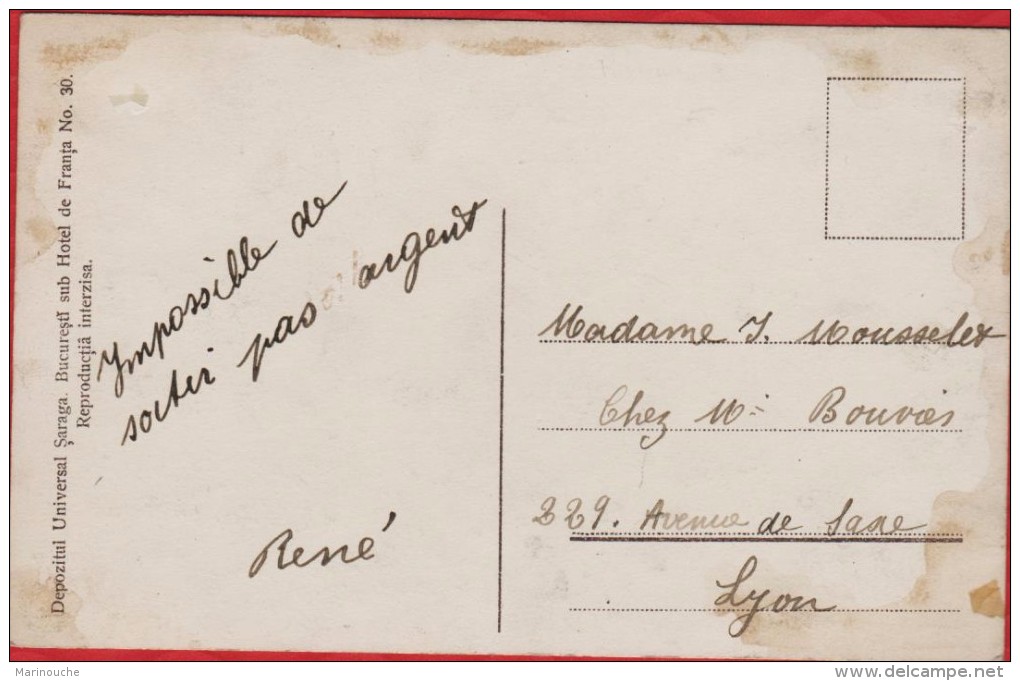 Depozitul Universal Șaraga. București sub Hotel de Franța No. 30.
Reproducția interzisa.
Impossible de
sortir pas argent
René
Madame J. Mousselet
Chez Mr Bouvais
229. Avenue de Saxe
Lyon
Marinouche
delcampe.net